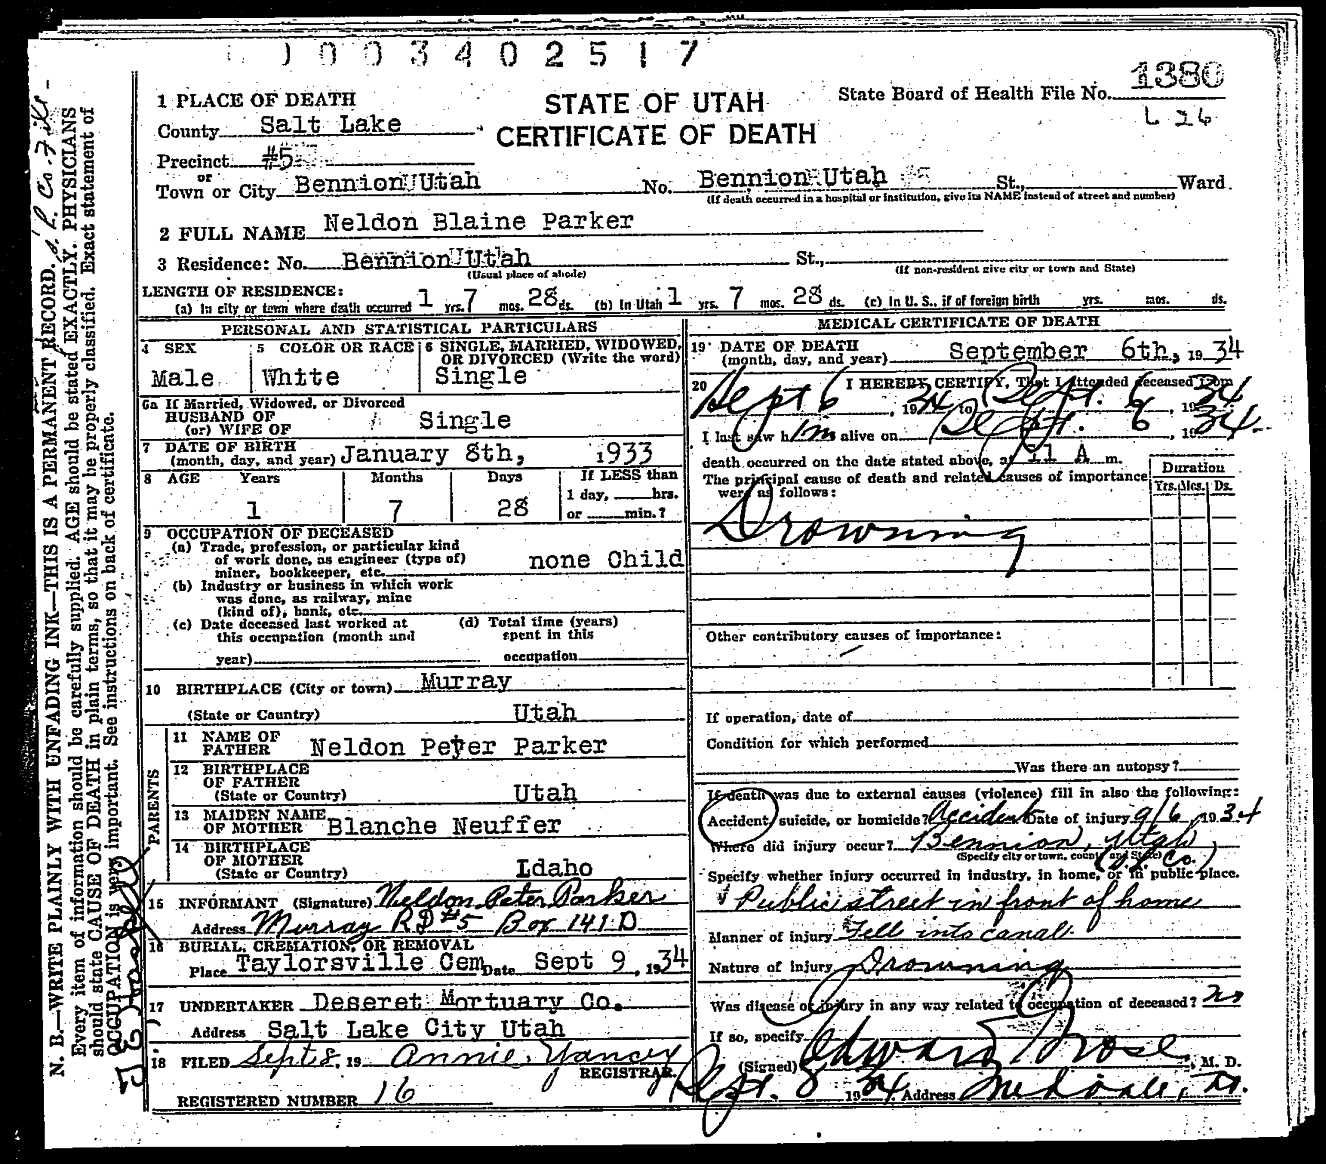 1003402517
1380
L 26
1 PLACE OF DEATH
STATE OF UTAH
CERTIFICATE OF DEATH
State Board of Health File No.
County Salt Lake
Precinct #5
or
Town or City Bennion Utah No. Bennion Utah St., Ward.
(If death occurred in a hospital or institution, give its NAME instead of street and number)
2 FULL NAME Neldon Blaine Parker
3 Residence: No. Bennion Utah St.,
(Usual place of abode) (If non-resident give city or town and State)
LENGTH OF RESIDENCE:
(a) In city or town where death occurred 1 yrs. 7 mos. 28 ds. (b) In Utah 1 yrs. 7 mos. 28 ds. (c) In U. S., if of foreign birth yrs. mos. ds.
PERSONAL AND STATISTICAL PARTICULARS
4 SEX
Male
5 COLOR OR RACE
White
6 SINGLE, MARRIED, WIDOWED, OR DIVORCED (Write the word)
Single
6a If Married, Widowed, or Divorced
HUSBAND OF
(or) WIFE OF Single
7 DATE OF BIRTH
(month, day, and year) January 8th, 1933
8 AGE Years Months Days If LESS than
1 day, hrs.
1 7 28 or min.?
9 OCCUPATION OF DECEASED
(a) Trade, profession, or particular kind
of work done, as engineer (type of)
miner, bookkeeper, etc. none Child
(b) Industry or business in which work
was done, as railway, mine
(kind of), bank, etc.
(c) Date deceased last worked at
this occupation (month and
year)
(d) Total time (years)
spent in this
occupation
10 BIRTHPLACE (City or town) Murray
(State or Country) Utah
PARENTS
11 NAME OF
FATHER Neldon Peter Parker
12 BIRTHPLACE
OF FATHER
(State or Country) Utah
13 MAIDEN NAME
OF MOTHER Blanche Neuffer
14 BIRTHPLACE
OF MOTHER
(State or Country) Idaho
15 INFORMANT (Signature) Neldon Peter Parker
Address Murray RD #5 Box 141-D
16 BURIAL, CREMATION, OR REMOVAL
Place Taylorsville Cem Date Sept 9, 1934
17 UNDERTAKER Deseret Mortuary Co.
Address Salt Lake City Utah
18 FILED Sept 8, 19 Annie Yancey
REGISTRAR.
REGISTERED NUMBER 16
MEDICAL CERTIFICATE OF DEATH
19 DATE OF DEATH
(month, day, and year) September 6th, 1934
20 I HEREBY CERTIFY, That I attended deceased from
Sept 6, 1934 to Sept. 6, 1934
I last saw him alive on Sept. 6, 1934
death occurred on the date stated above, at 11 A m.
The principal cause of death and related causes of importance
were as follows:
Duration
Yrs. Mos. Ds.
Drowning
Other contributory causes of importance:
If operation, date of
Condition for which performed
Was there an autopsy?
If death was due to external causes (violence) fill in also the following:
Accident, suicide, or homicide? Accident Date of injury 9/6 1934
Where did injury occur? Bennion, Utah
(Specify city or town, county and State) (S.L. Co.)
Specify whether injury occurred in industry, in home, or in public place.
Public street in front of home
Manner of injury Fell into canal
Nature of injury Drowning
Was disease or injury in any way related to occupation of deceased? No
If so, specify
(Signed) Edward Trose, M. D.
Sept. 8 1934 Address Midvale, U.
N. B.—WRITE PLAINLY WITH UNFADING INK—THIS IS A PERMANENT RECORD.
Every item of information should be carefully supplied. AGE should be stated EXACTLY. PHYSICIANS
should state CAUSE OF DEATH in plain terms, so that it may be properly classified. Exact statement of
OCCUPATION is very important. See instructions on back of certificate.